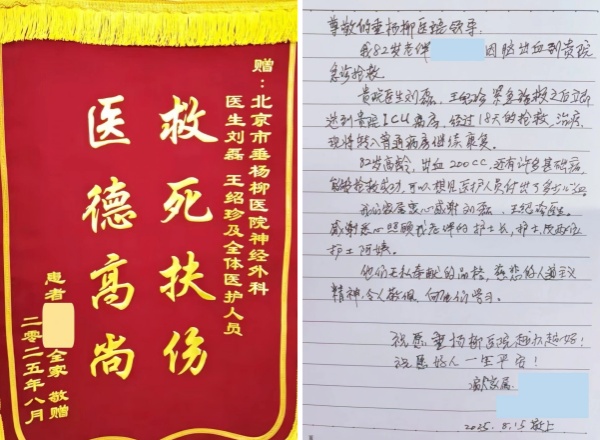 赠：北京市垂杨柳医院神经外科
医生刘磊 王绍珍及全体医护人员
救死扶伤
医德高尚
患者
全家 敬赠
二零二五年八月
尊敬的垂杨柳医院领导：
我82岁老伴
因脑出血到贵院
急诊抢救。
贵院医生刘磊、王绍珍紧急抢救之后立即
送到贵院ICU病房，经过18天的抢救、治疗，
现转入普通病房继续康复。
82岁高龄，出血200CC，还有许多基础病，
能够抢救成功，可以想见医护人员付出了多少心血。
我们家属衷心感谢刘磊、王绍珍医生。
感谢悉心照顾我老伴的护士长、护士
护士阿姨。
他们无私奉献的品格、慈悲的人道主义
精神，令人敬佩，向他们学习。
祝愿垂杨柳医院越办越好！
祝愿好人一生平安！
家属
2025.8.15敬上